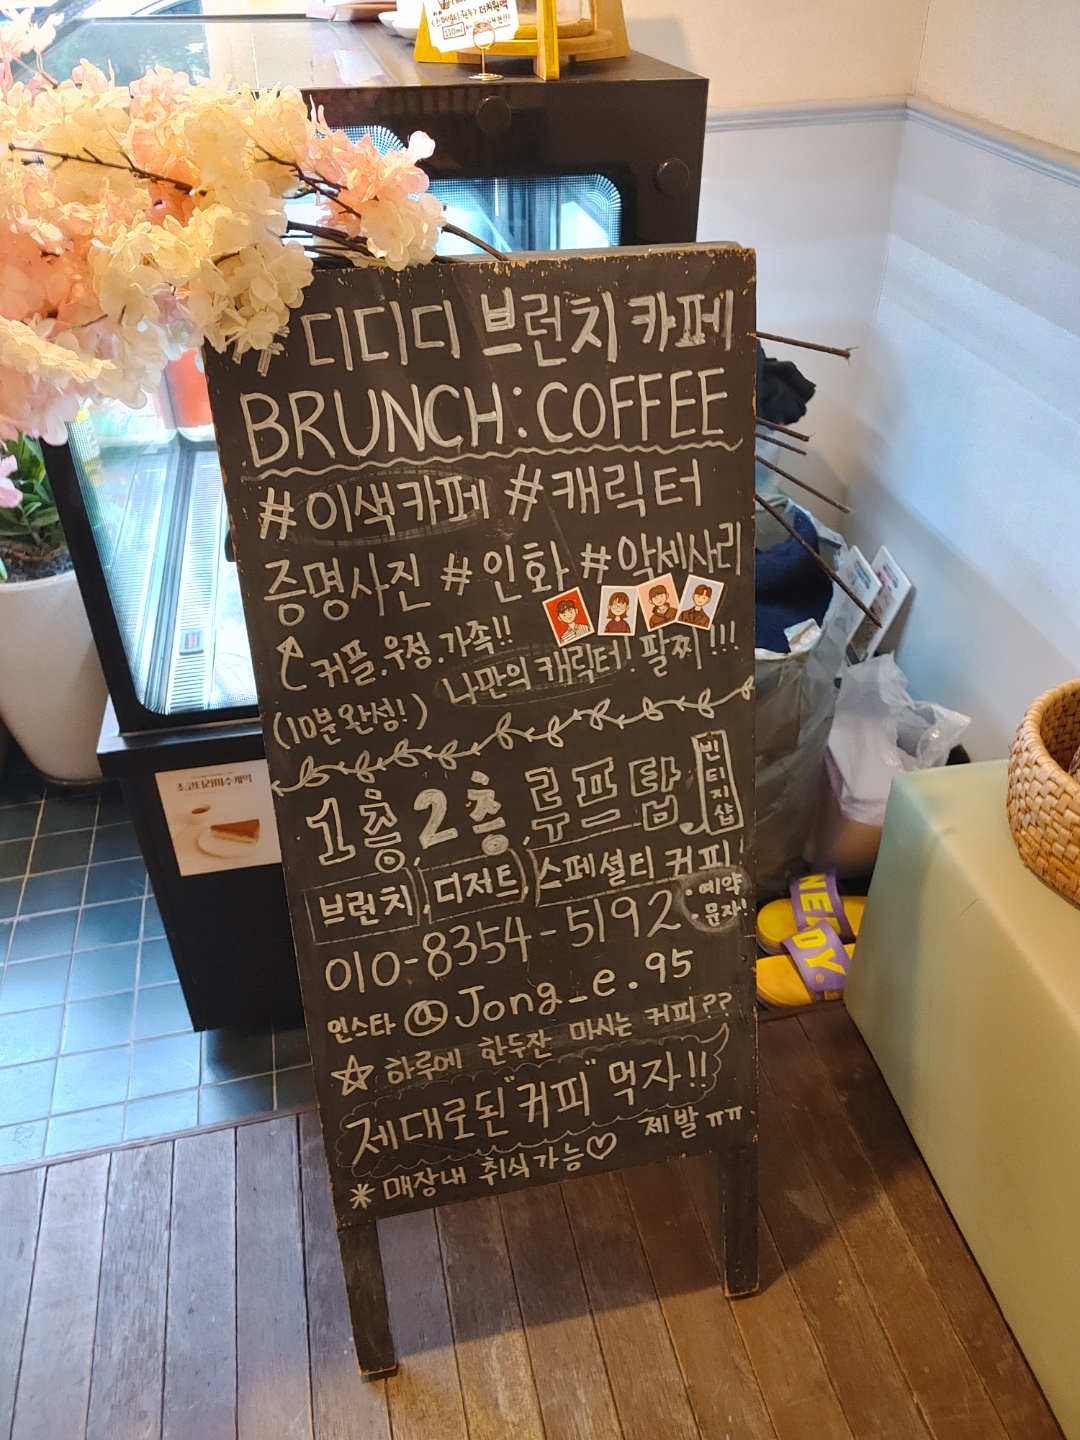 110ml
# 디디디 브런치 카페
BRUNCH : COFFEE
#이색카페 #캐릭터
증명사진 #인화 #악세사리
커플.우정.가족!!
나만의 캐릭터! 팔찌!!!
(10분완성!)
1층, 2층, 루프탑
빈티지샵
브런치, 디저트, 스페셜티 커피!
010-8354-5192
·예약
·문자!
인스타 @Jong_e.95
☆ 하루에 한두잔 마시는 커피??
제대로된 "커피" 먹자!!
제발 ㅠㅠ
* 매장내 취식가능♡
초코티라미수케익